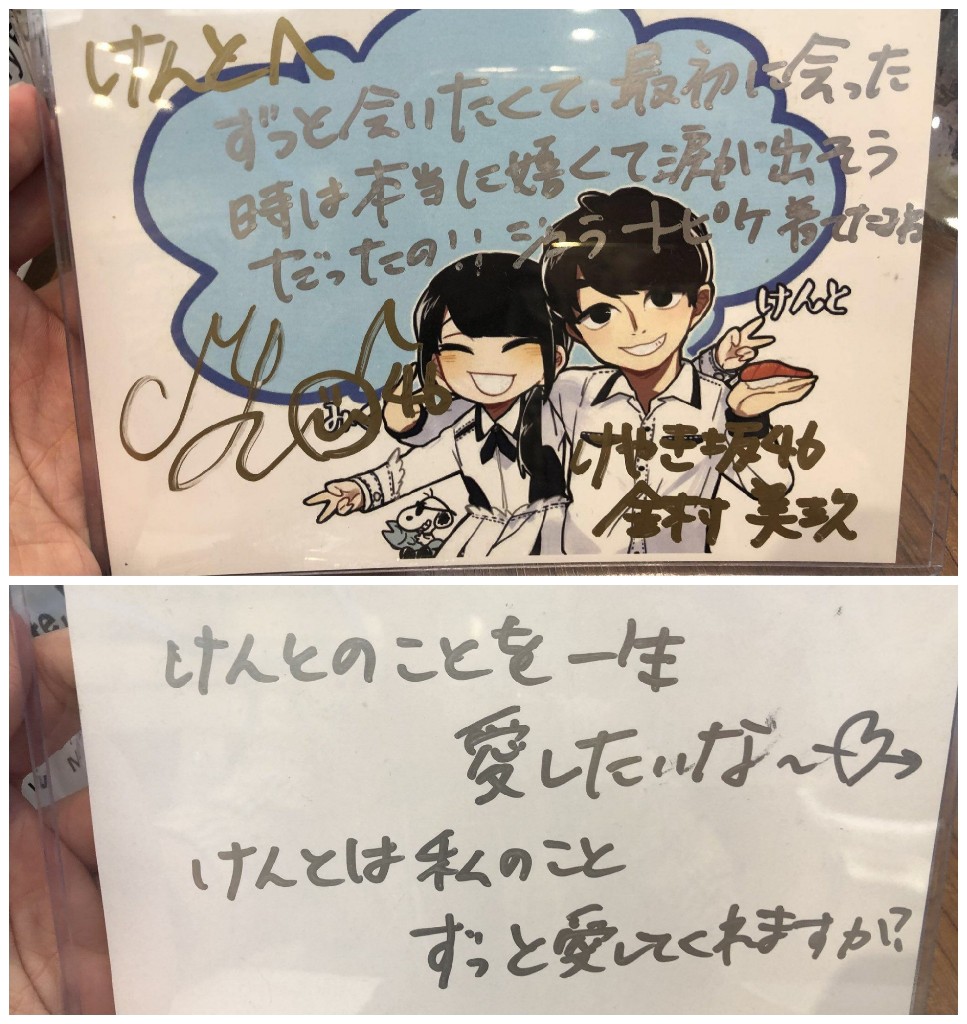 けんとへ
ずっと会いたくて、最初に会った
時は本当に嬉くて涙が出そう
だったの!! ジェラートピケ着てたよね
けんと
46
けやき坂46
金村 美玖
けんとのことを一生
愛したいな〜♡→
けんとは私のこと
ずっと愛してくれますか?